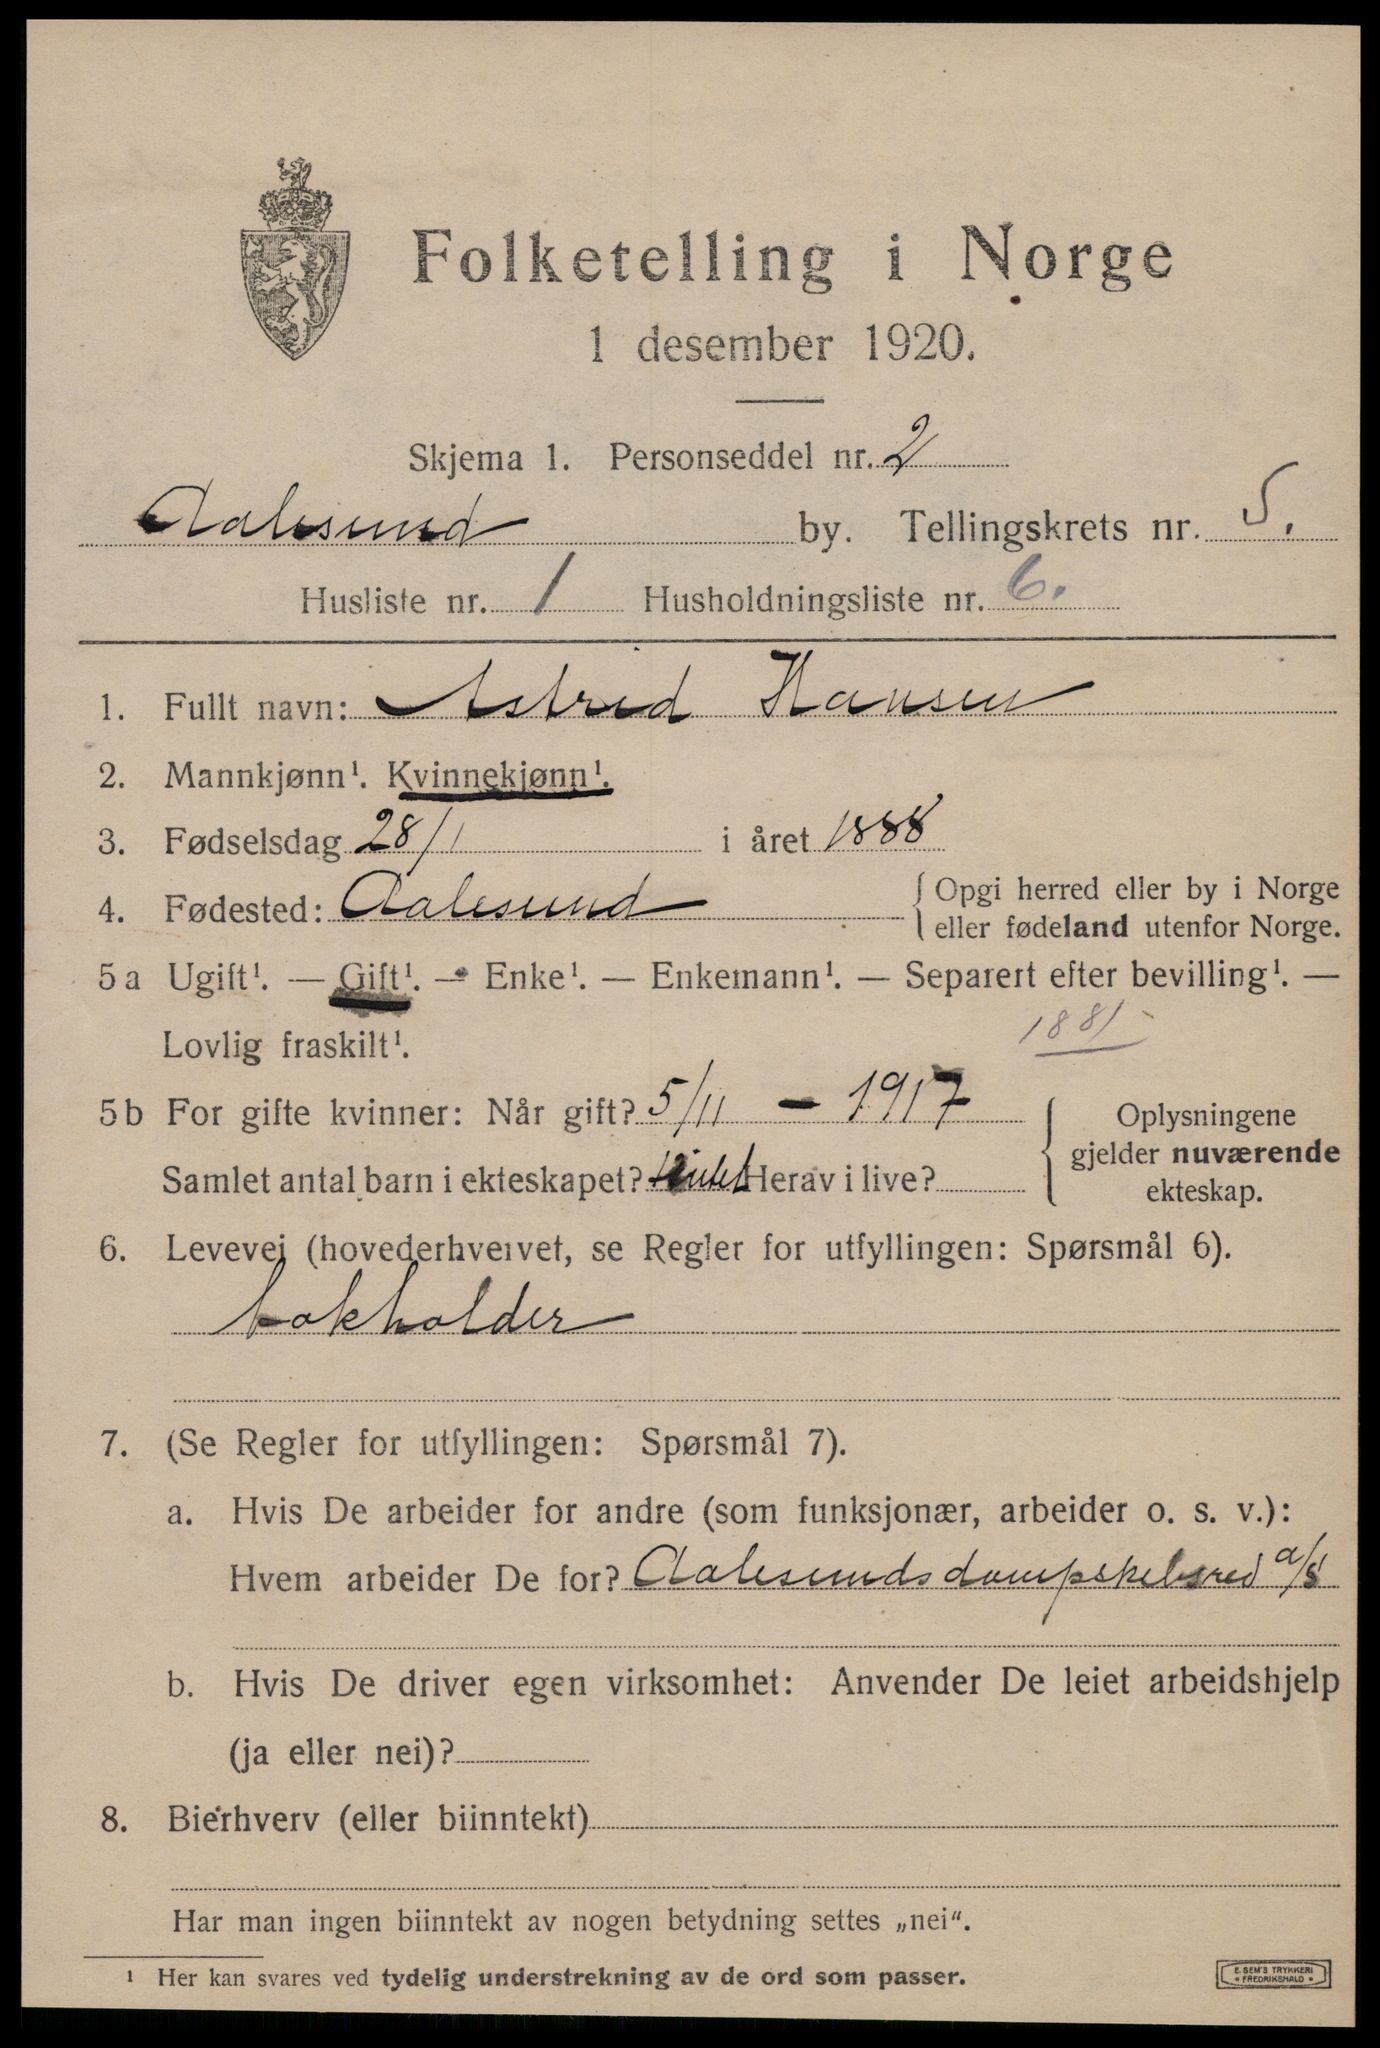 Folketelling i Norge
1 desember 1920.
Skjema 1. Personseddel nr. 2
Aalesund by. Tellingskrets nr. 5.
Husliste nr. 1 Husholdningsliste nr. 6.
1. Fullt navn: Astrid Hansen
2. Mannkjønn¹. Kvinnekjønn¹.
3. Fødselsdag 28/1 i året 1888
4. Fødested: Aalesund { Opgi herred eller by i Norge
eller fødeland utenfor Norge.
5 a Ugift¹. — Gift¹. — Enke¹. — Enkemann¹. — Separert efter bevilling¹. —
Lovlig fraskilt¹. 1881
5 b For gifte kvinner: Når gift? 5/11 — 1917
Samlet antal barn i ekteskapet? intet Herav i live?
{ Oplysningene
gjelder nuværende
ekteskap.
6. Levevei (hovederhvervet, se Regler for utfyllingen: Spørsmål 6).
bokholder
7. (Se Regler for utfyllingen: Spørsmål 7).
a. Hvis De arbeider for andre (som funksjonær, arbeider o. s. v.):
Hvem arbeider De for? Aalesunds dampskibsred a/s
b. Hvis De driver egen virksomhet: Anvender De leiet arbeidshjelp
(ja eller nei)?
8. Bierhverv (eller biinntekt)
Har man ingen biinntekt av nogen betydning settes „nei“.
¹ Her kan svares ved tydelig understrekning av de ord som passer.
E. SEM'S TRYKKERI
• FREDRIKSHALD •